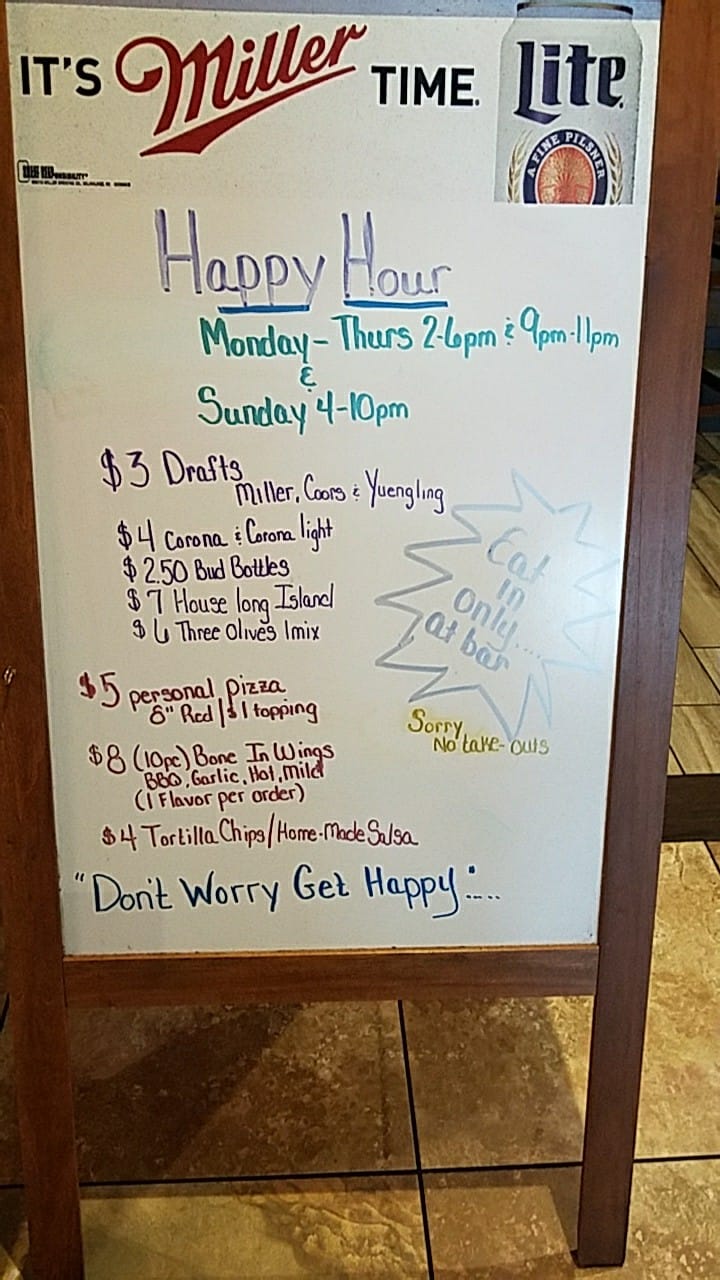 IT'S Miller TIME. Lite
A FINE PILSNER
Happy Hour
Monday - Thurs 2-6pm & 9pm-11pm
&
Sunday 4-10pm
$3 Drafts
Miller, Coors & Yuengling
$4 Corona & Corona light
$2.50 Bud Bottles
$7 House long Island
$6 Three Olives 1mix
Eat
in
only....
at bar
$5 personal pizza
8" Red/$1 topping
Sorry
No take-outs
$8 (10pc) Bone In Wings
BBQ, Garlic, Hot, Mild
(1 Flavor per order)
$4 Tortilla Chips/Home-Made Salsa
"Don't Worry Get Happy"....